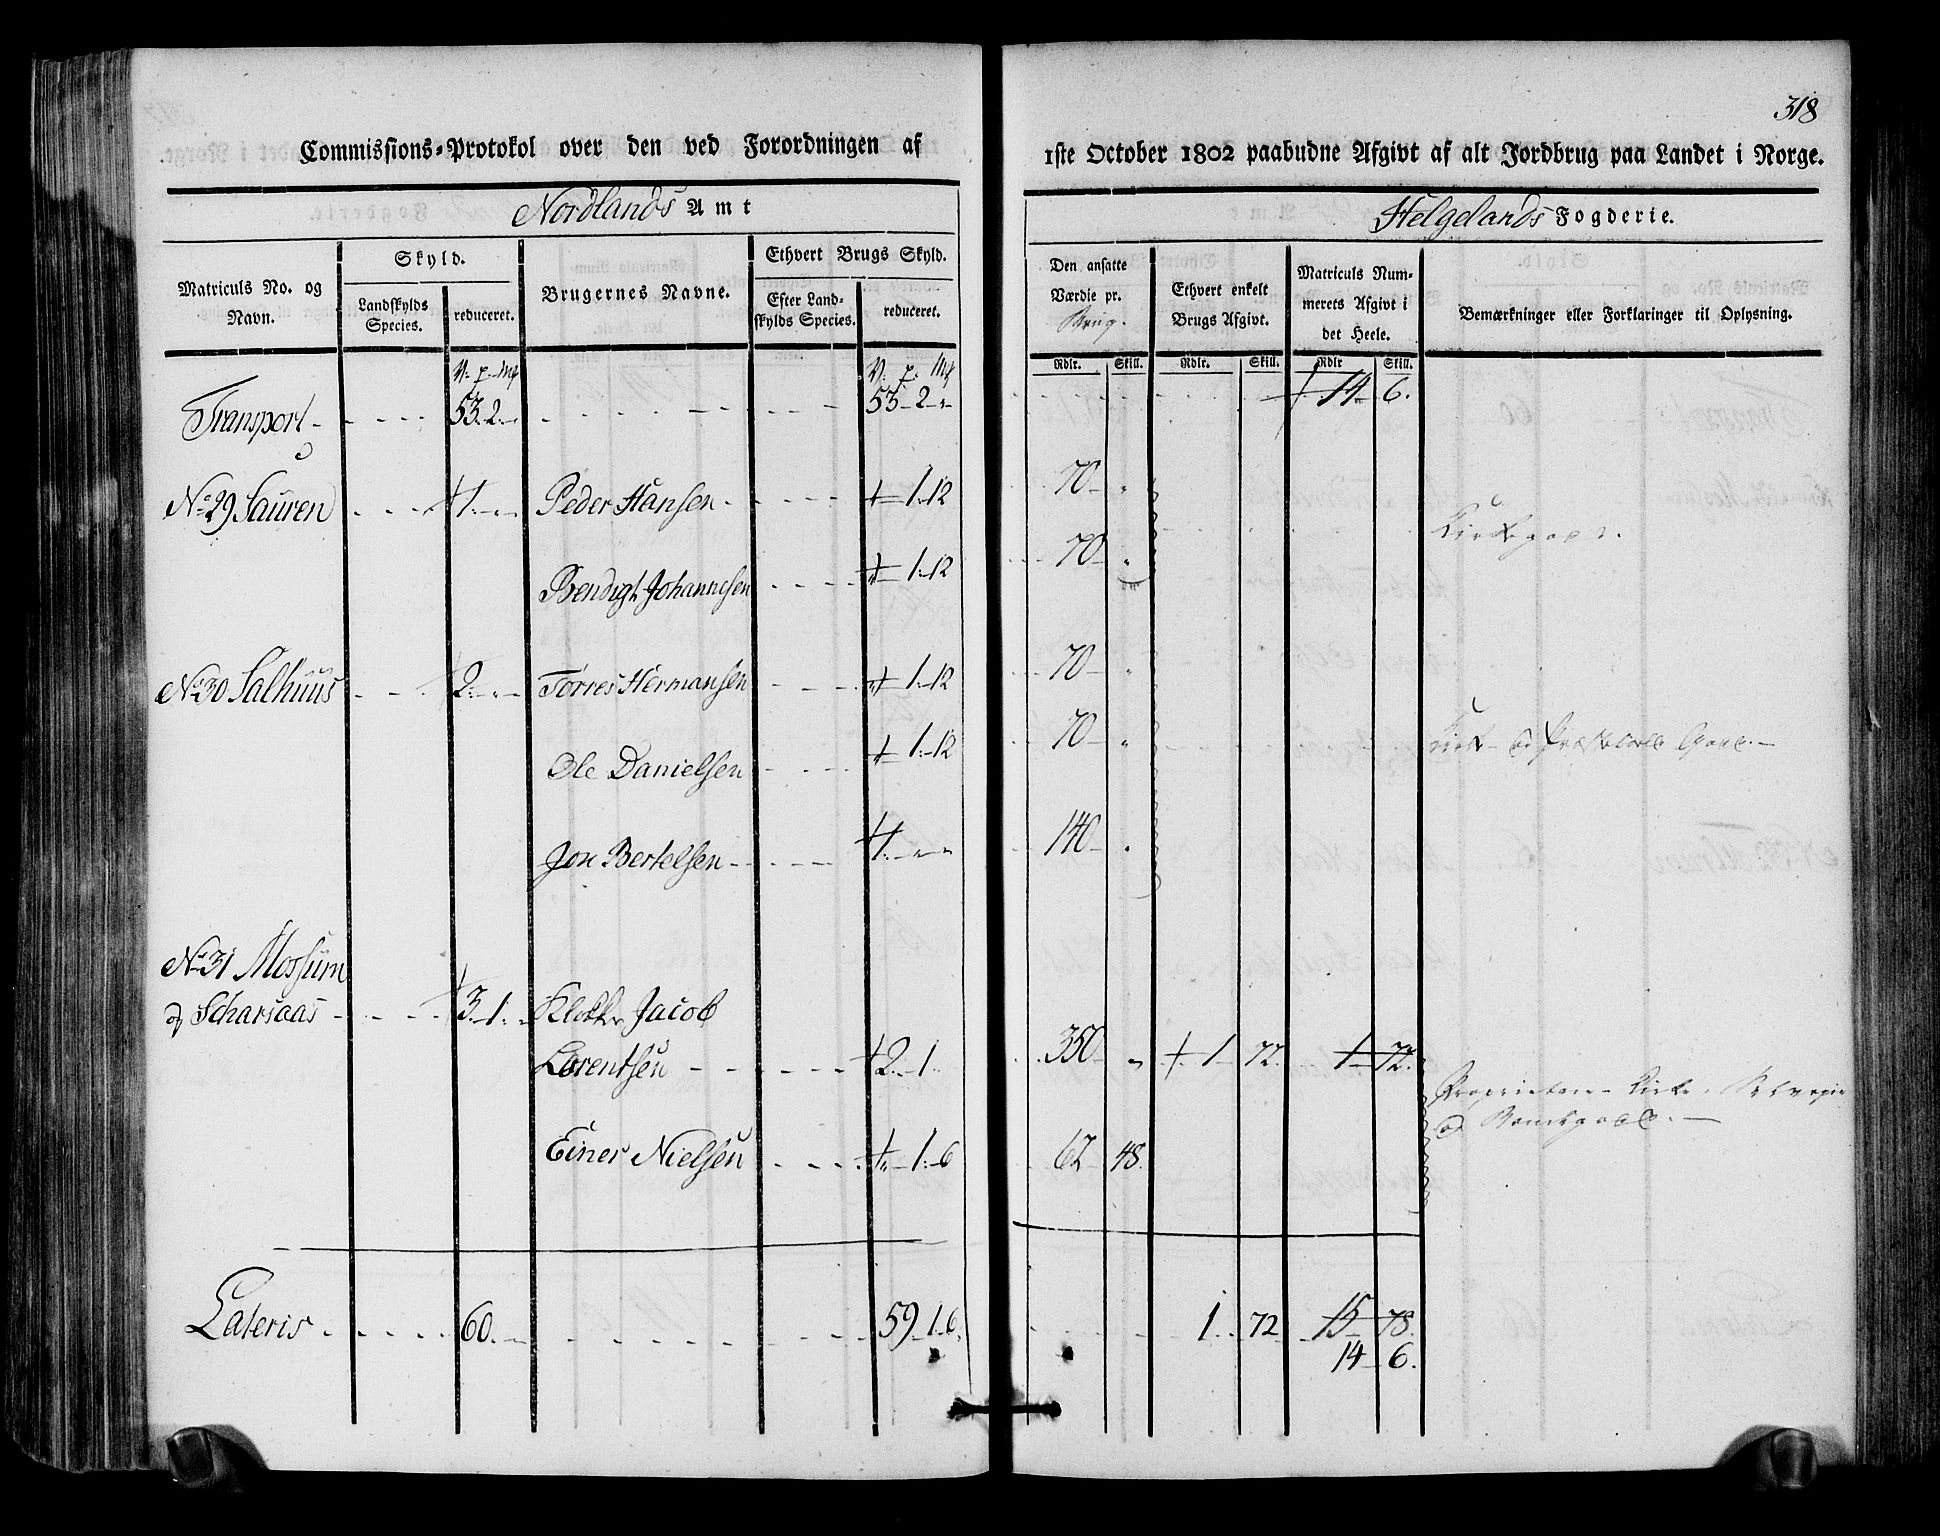 318
Commissions-Protokol over den ved Forordningen af
1ste October 1802 paabudne Afgivt af alt Jordbrug paa Landet i Norge.
Nordlands Amt
Helgelands Fogderie.
Matriculs No. og Navn.
Skyld.
Landskylds Species.
reduceret.
Brugernes Navne.
Ethvert Brugs Skyld.
Efter Landskylds Species.
reduceret.
Den ansatte Værdie pr. Brug.
Ethvert enkelt Brugs Afgivt.
Matriculs Nummerets Afgivt i det Heele.
Bemærkninger eller Forklaringer til Oplysning.
Rdlr. Skill. Rdlr. Skill. Rdlr Skill.
V. p. Mk V. p. Mk
Transport - 53. 2. - 53 - 2 - 14 - 6.
No. 29 Sauren 1. Peder Hansen 1. 12 70
Kirkegods.
Bendigt Johannesen 1. 12 70
No. 30 Salhuus 2. Torres Hermansen 1. 12 70
Ole Danielsen 1. 12 70
Jon Bertelsen 1. 140
No. 31 Mossum
& Scharsaas 3. 1. Klokker Jacob
Lorentsen 2. 1. 350 1 72. 1 72.
Einer Nielsen 1. 6 67 48.
Lateris 60. 59 1. 6. 1. 72 15 78.
14 6.